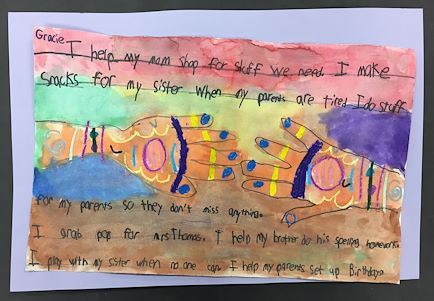 Gracie
I help my mom shop for stuff we need. I make
snacks for my sister when my parents are tired. I do stuff
for my parents so they don't miss anything.
I grab pop for mrs Thomas. I help my brother do his spelling homework.
I play with my sister when no one can. I help my parents set up Birthdays